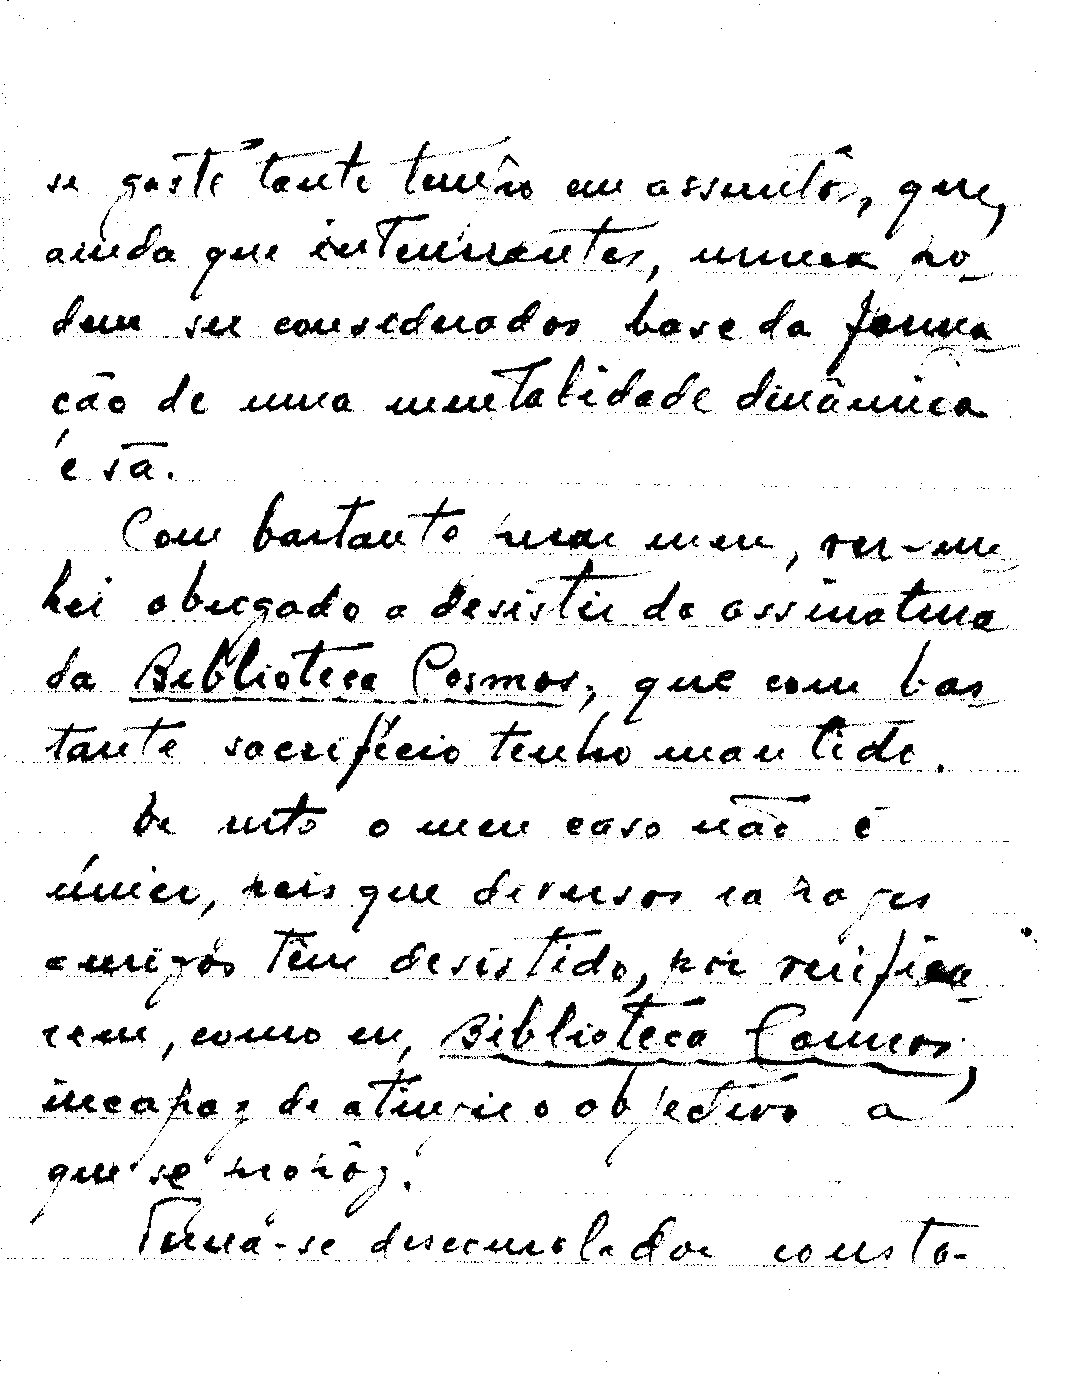 se gaste tanto tempo em assuntos, que,
ainda que interessantes, nunca po-
dem ser considerados base da forma-
ção de uma mentalidade dinâmica
e sã.
Com bastante pesar meu, ver-me-
hei obrigado a desistir da assinatura
da Biblioteca Cosmos, que com bas-
tante sacrifício tenho mantido.
De resto o meu caso não é
único, pois que diversos rapazes
amigos têm desistido, por verifica-
rem, como eu, Biblioteca Cosmos,
incapaz de atingir o objectivo a
que se propôz.
Torna-se desconsolador consta-